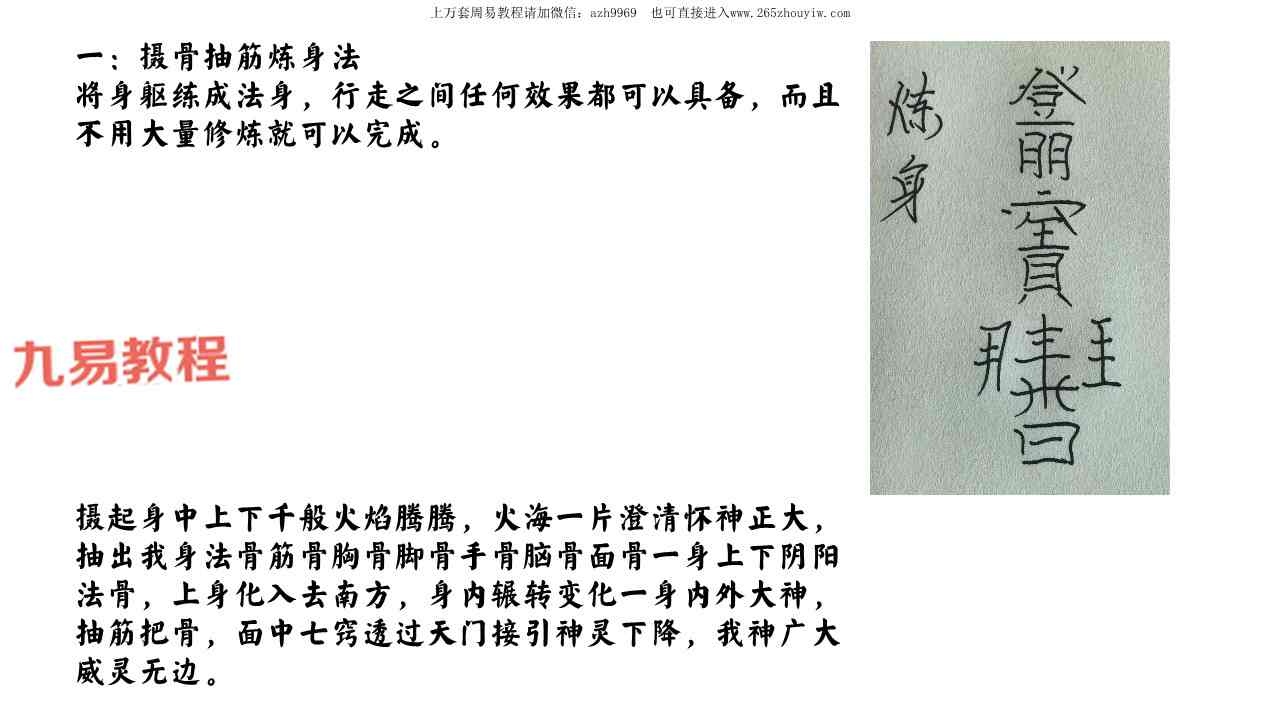 上万套周易教程请加微信：azh9969　也可直接进入www.265zhouyiw.com
一：摄骨抽筋炼身法
将身躯练成法身，行走之间任何效果都可以具备，而且
不用大量修炼就可以完成。
炼身
九易教程
摄起身中上下千般火焰腾腾，火海一片澄清怀神正大，
抽出我身法骨筋骨胸骨脚骨手骨脑骨面骨一身上下阴阳
法骨，上身化入去南方，身内辗转变化一身内外大神，
抽筋把骨，面中七窍透过天门接引神灵下降，我神广大
威灵无边。